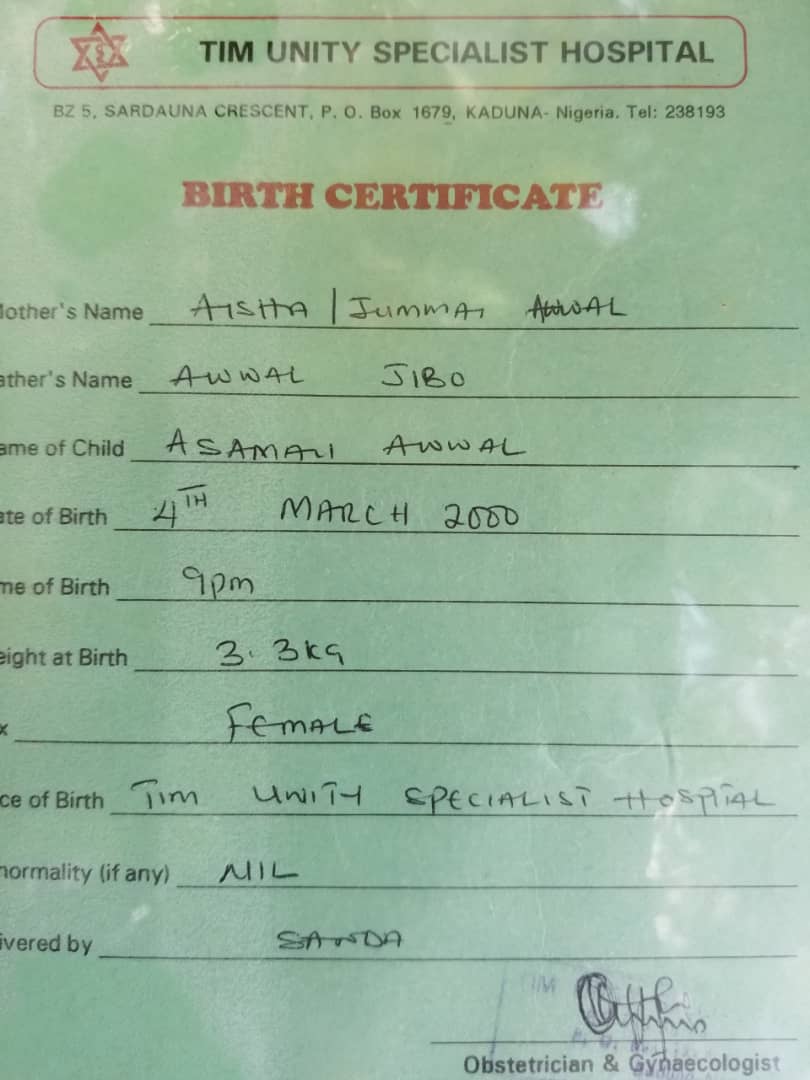 TIM UNITY SPECIALIST HOSPITAL
BZ 5, SARDAUNA CRESCENT, P. O. Box 1679, KADUNA- Nigeria. Tel: 238193
BIRTH CERTIFICATE
other's Name AISHA | JUMMAI AWWAL
ather's Name AWWAL JIBO
ame of Child ASAMALI AWWAL
ate of Birth 4TH MARCH 2000
me of Birth 9pm
eight at Birth 3.3kg
x FEMALE
ce of Birth TIM UNITY SPECIALIST HOSPITAL
normality (if any) NIL
ivered by SANDA
TIM
Obstetrician & Gynaecologist